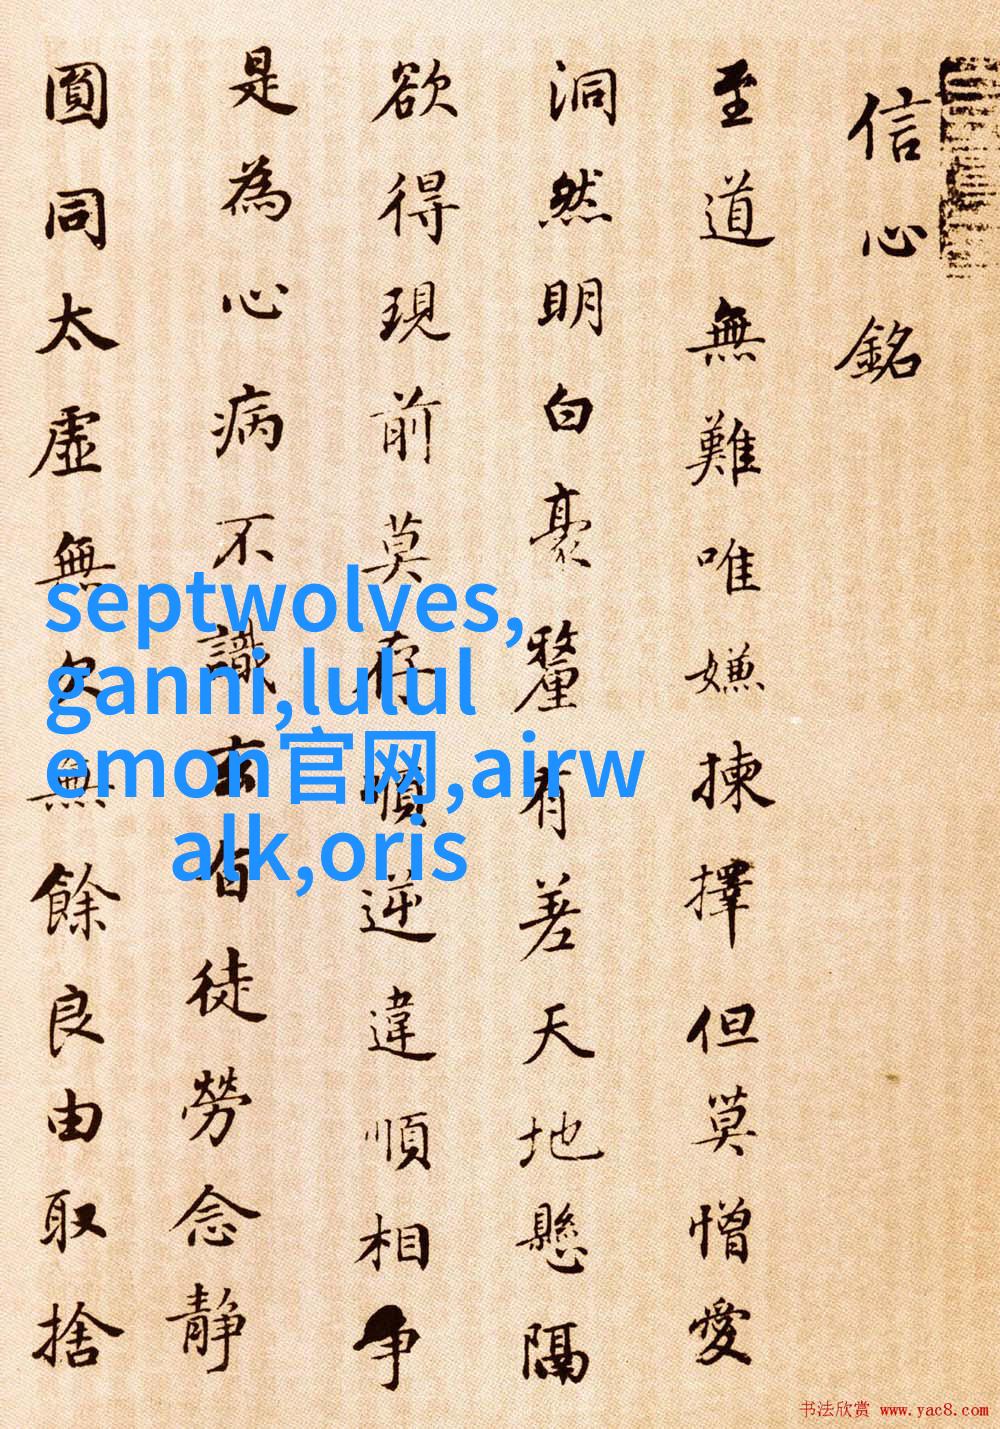 信心銘
至道無難唯嫌揀擇但莫憎愛
洞然明白豪釐有差天地懸隔
欲得現前莫存順逆違順相争
是為心病不識玄旨徒勞念静
圓同太虛無欠無餘良由取捨
septwolves,
ganni,lulul
emon官网,airw
alk,oris
书法欣赏 www.yac8.com